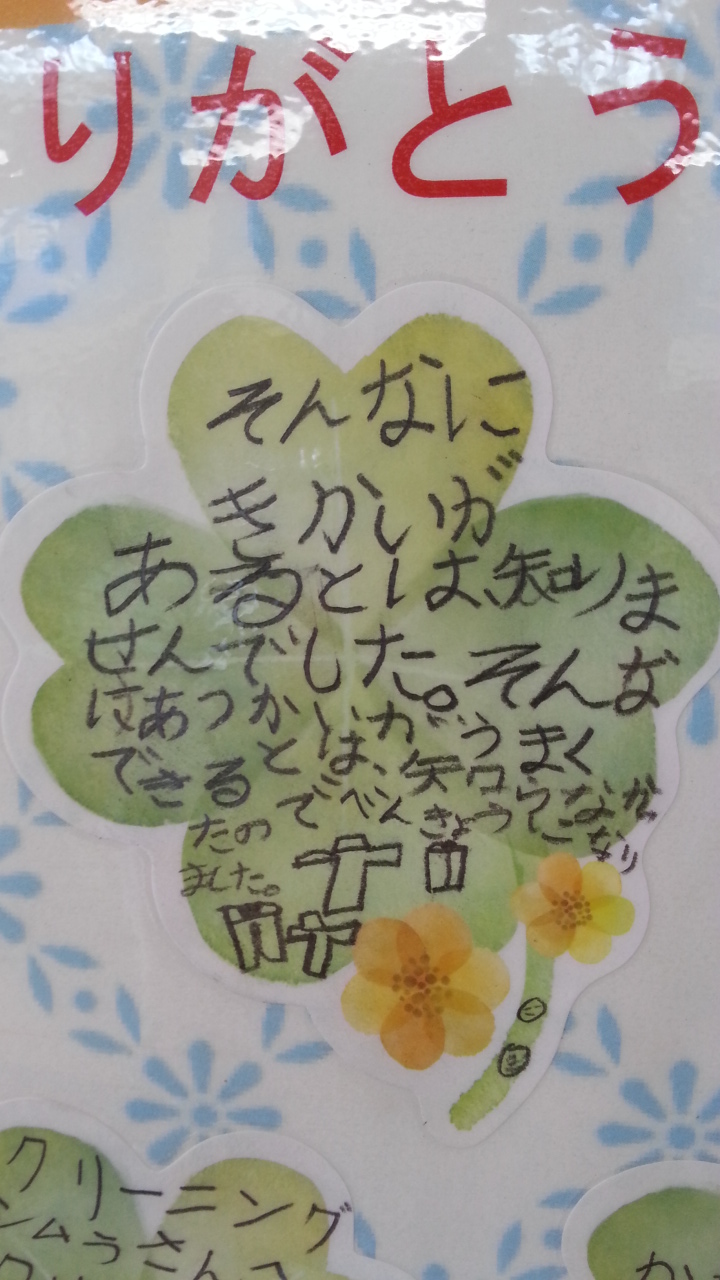 りがとう
そんなに
きかいが
あるとは、知りま
せんでした。そんな
にあつかいがうまく
できるとは、知らなか
たのでべんきょうになり
ました。
クリーニング